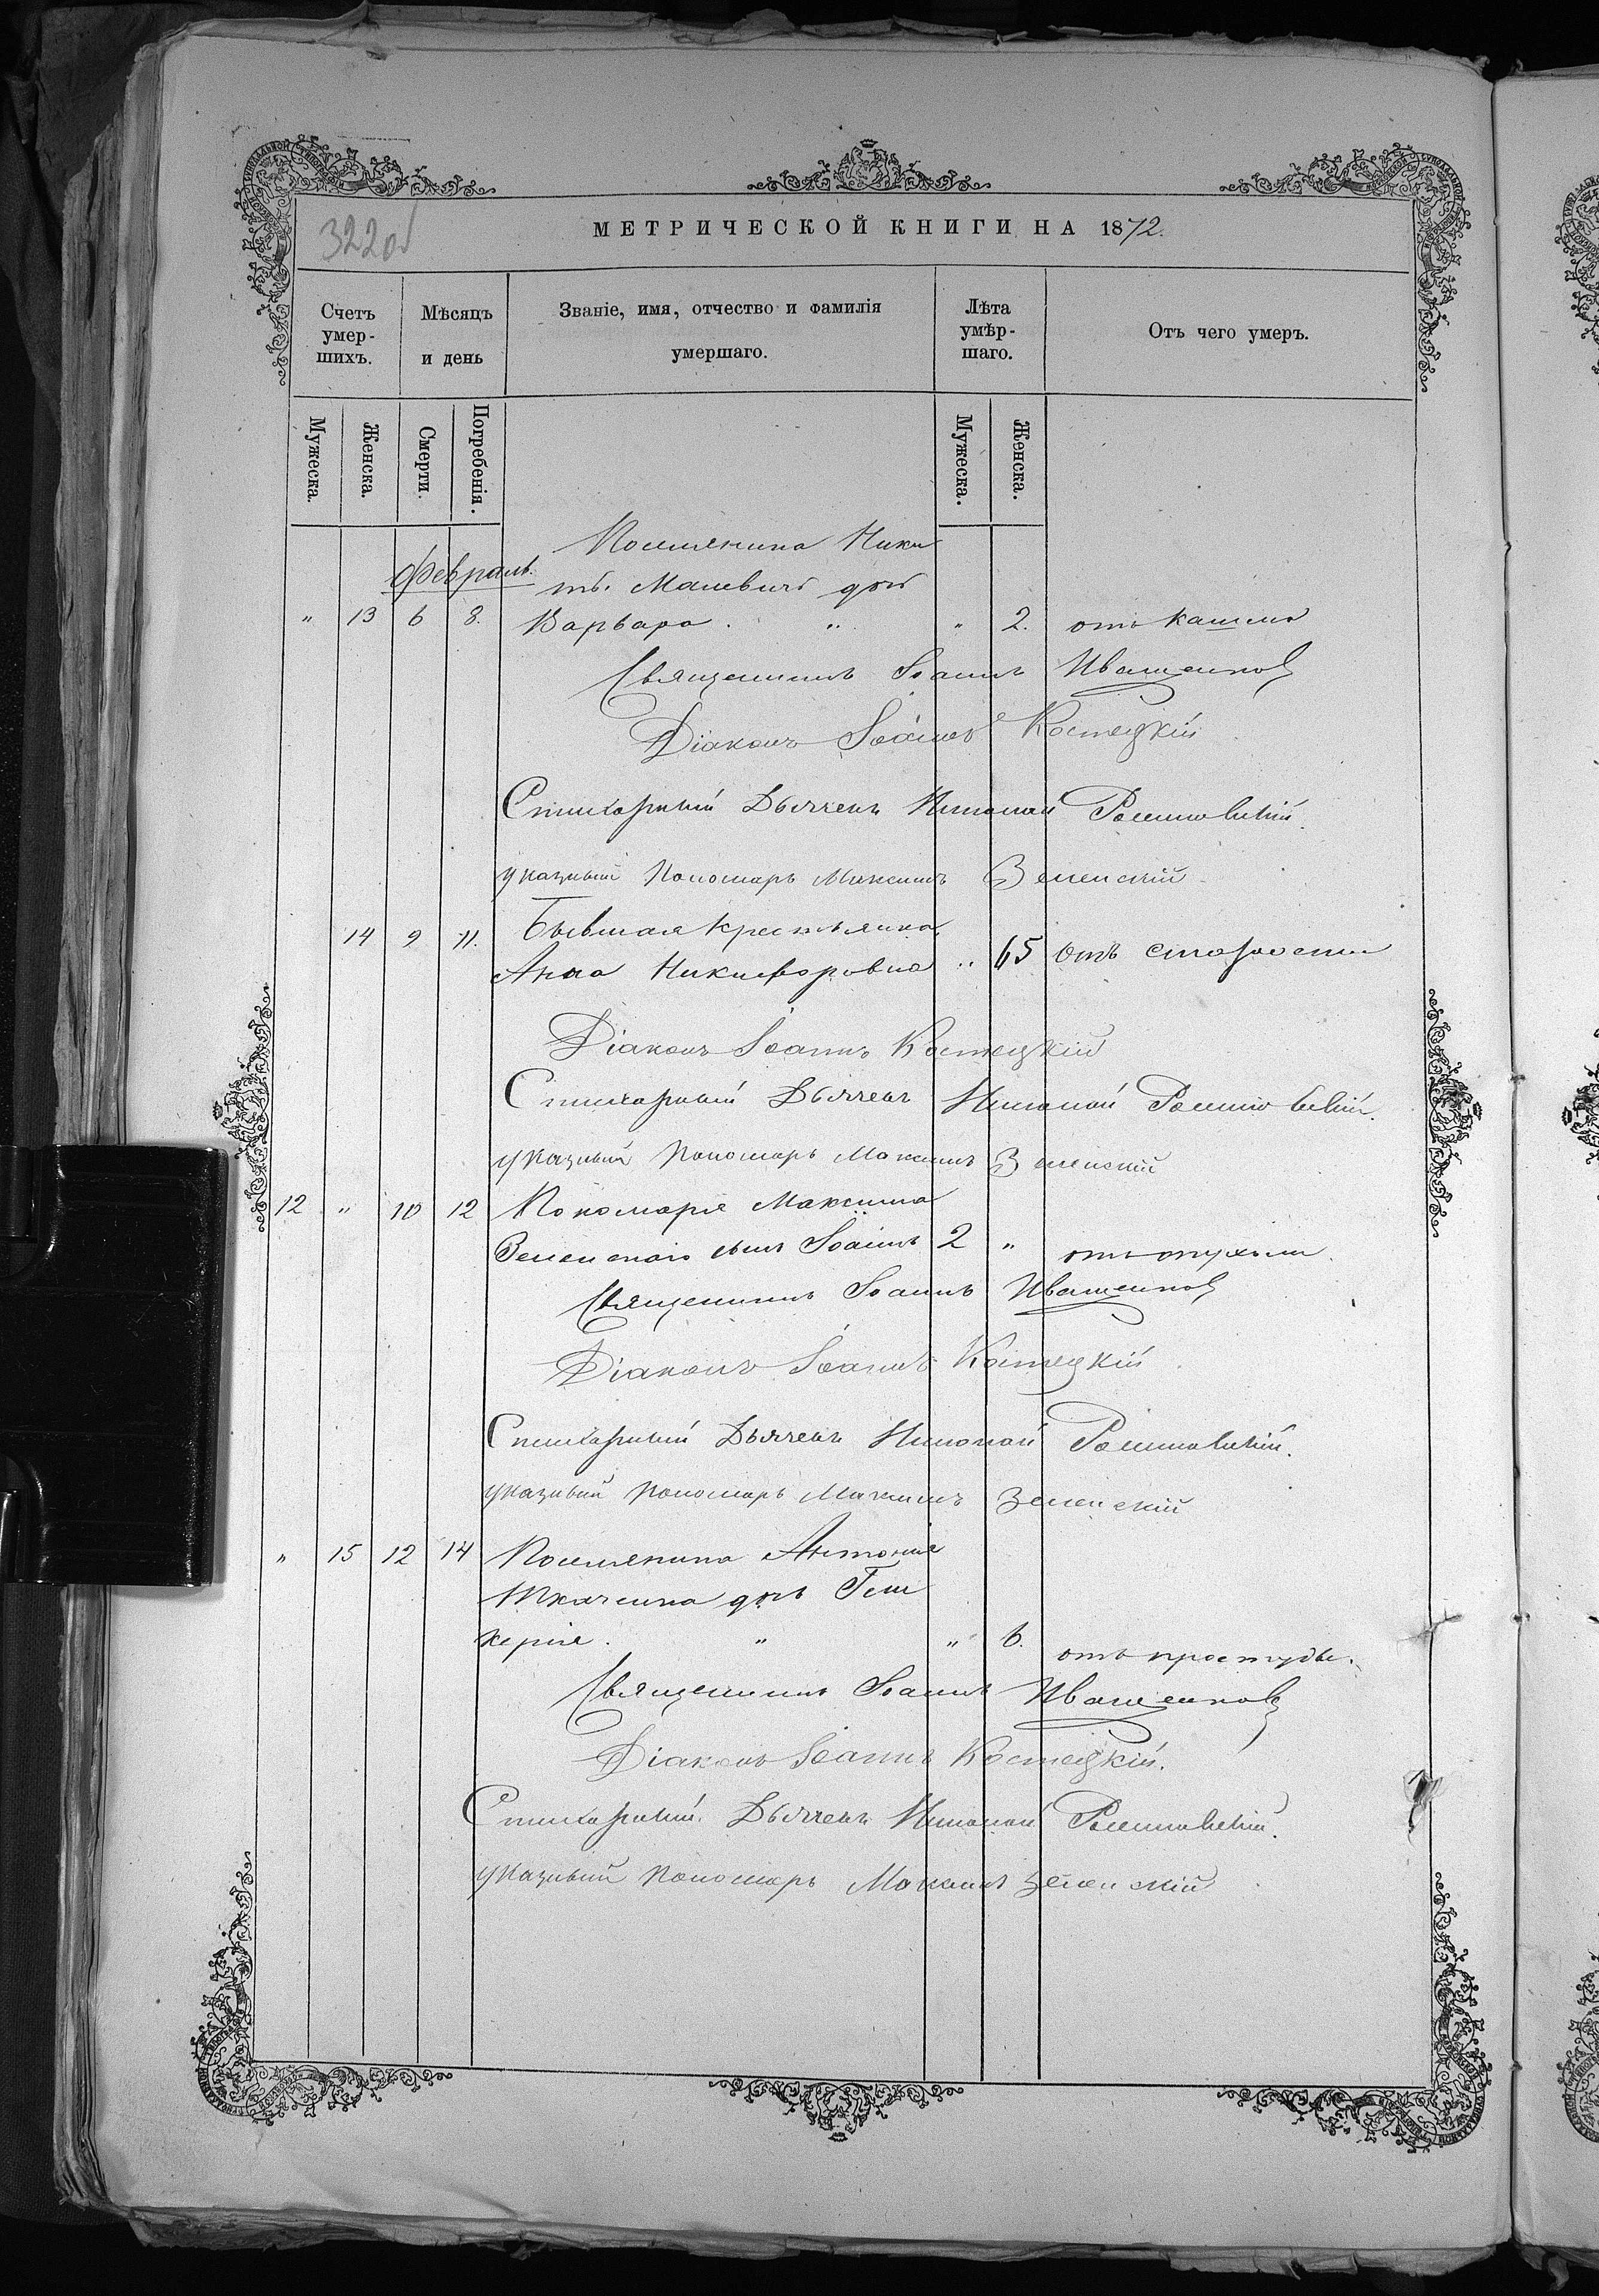 322об
МЕТРИЧЕСКОЙ КНИГИ НА 1872.
Счетъ умер-шихъ.
Мѣсяцъ и день
Званіе, имя, отчество и фамилія умершаго.
Лѣта умѣр-шаго.
Отъ чего умеръ.
Мужеска. Женска. Смерти. Погребенія. Мужеска. Женска.
Поселянина Ники
Февраль.
ты Малевича дочь
" 13 6 8. Варвара. " " 2. отъ кашля
Священникъ Іоаннъ Иващенков
Діаконъ Іоаннъ Костецкій
Стихарный Дьячекъ Николай
указный Пономарь Максимъ Зеленскій
14 9 11. Бывшая крестьянка
Анна Никифоровна " 65 отъ старости
Діаконъ Іоаннъ Костецкій
Стихарный Дьячекъ Николай
указный Пономарь Максимъ Зеленскій
12 " 10 12 Пономаря Максима
Зеленскаго сынъ Іоаннъ 2 " отъ опухоли
Священникъ Іоаннъ Иващенков
Діаконъ Іоаннъ Костецкій
Стихарный Дьячекъ Николай
указный Пономарь Максимъ Зеленскій
" 15 12 14 Поселянина Антонія
Ткаченка дочь Гли
керія. " " 6. отъ простуды.
Священникъ Іоаннъ Иващенков
Діаконъ Іоаннъ Костецкій.
Стихарный Дьячекъ Николай
указный Пономарь Максимъ Зеленскій